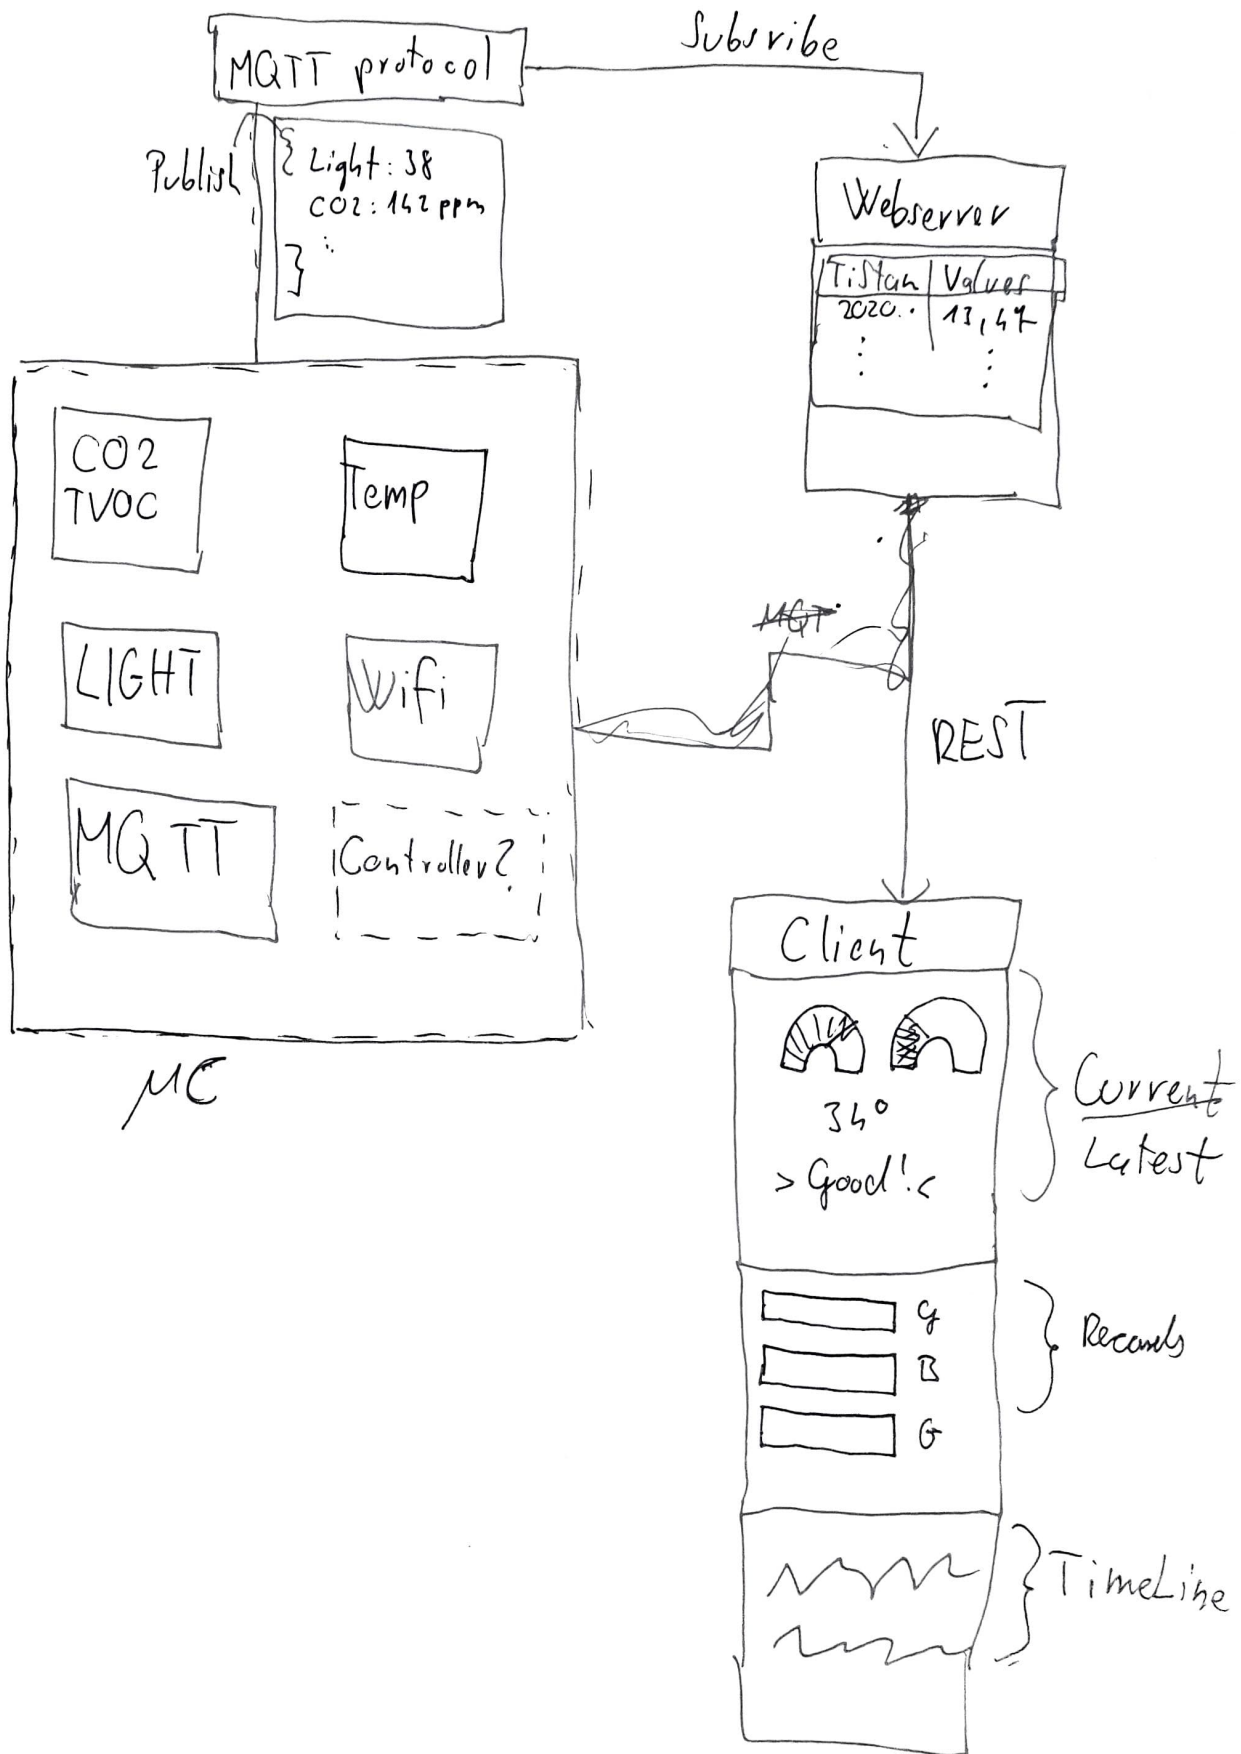 Subsribe
MQTT protocol
Publish
{ Light: 38
CO2: 142 ppm
}
Webserver
TiStam | Values
2020.. | 13,47
CO2
TVOC
Temp
LIGHT
Wifi
MQTT
Controller?
μC
MQT
REST
Client
34°
>Good!<
Current
Latest
G
B
G
Records
TimeLine